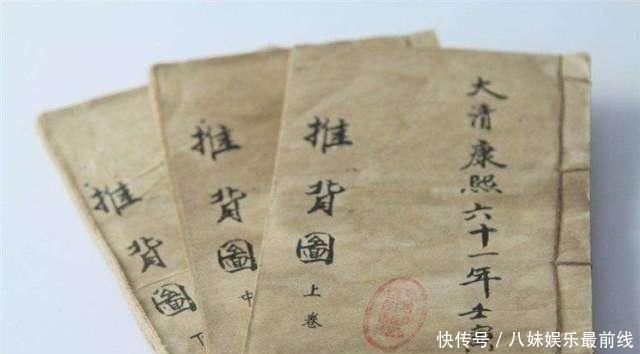 大清康熙六十一年壬
推背圖
上卷
推背圖
中
推背圖
下
快传号／八妹娱乐最前线